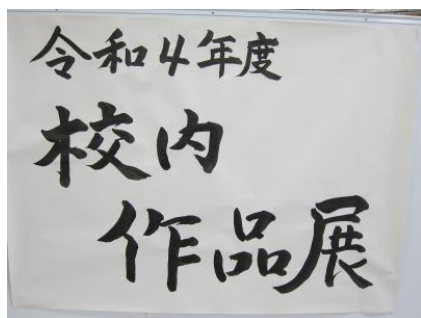 令和4年度
校内
作品展